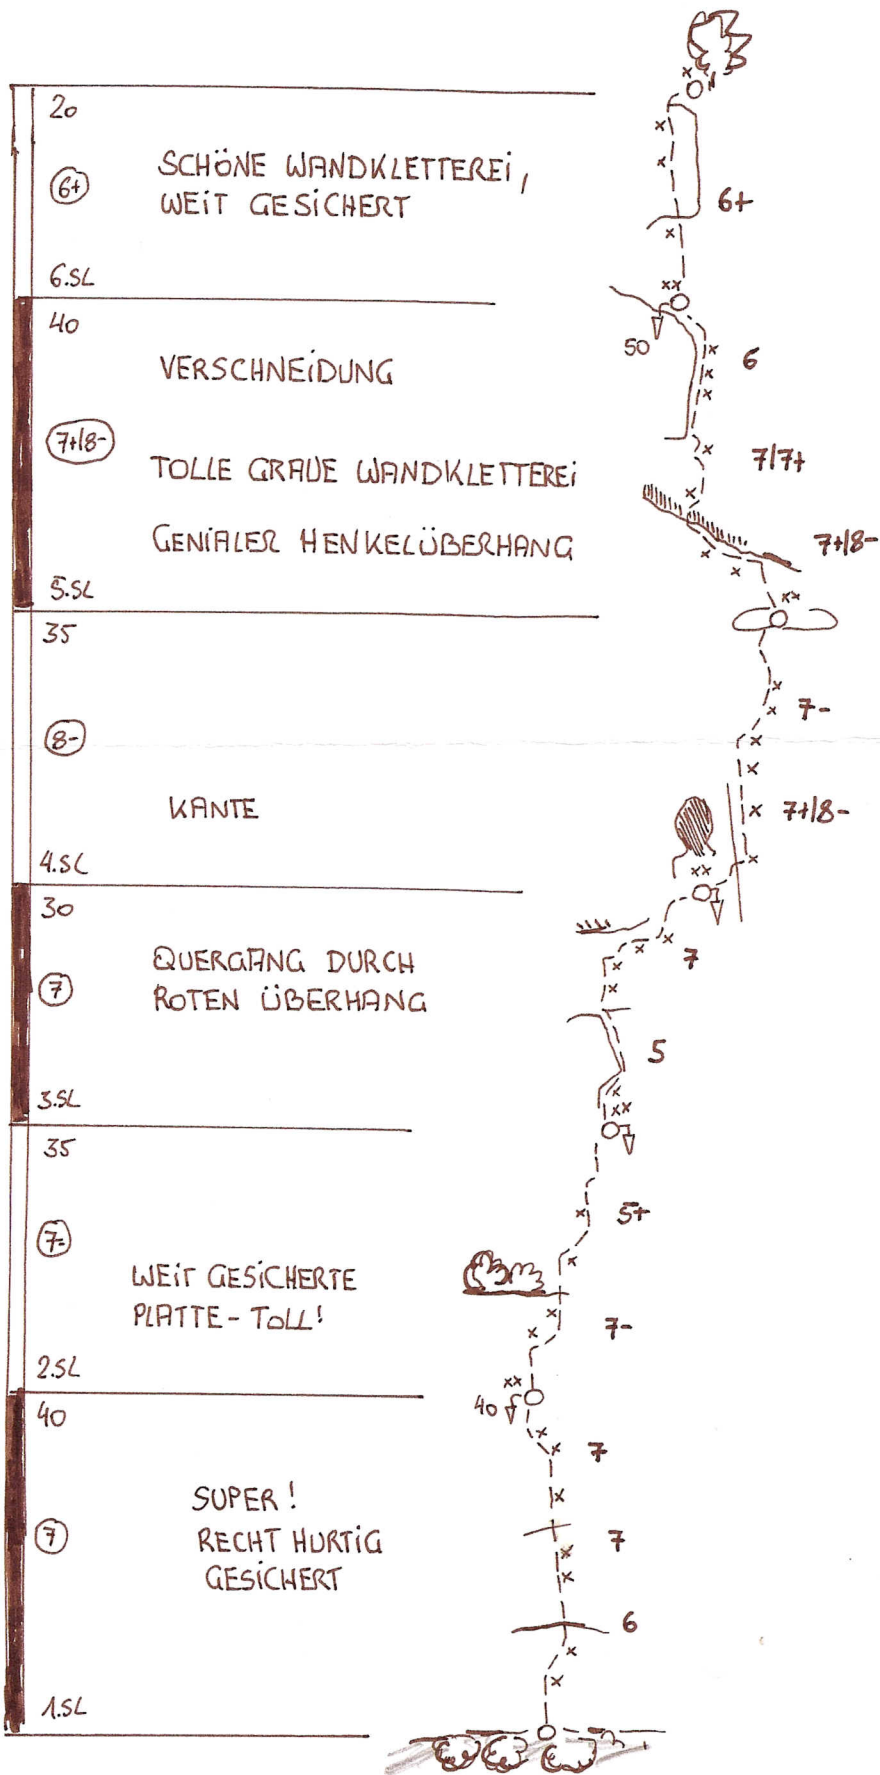 20
6+
SCHÖNE WANDKLETTEREI,
WEIT GESICHERT
6+
6.SL
40
50
6
VERSCHNEIDUNG
7+/8-
7/7+
TOLLE GRAUE WANDKLETTEREI
GENIALER HENKELÜBERHANG
7+/8-
5.SL
35
7-
8-
KANTE
7+/8-
4.SL
30
QUERGANG DURCH
ROTEN ÜBERHANG
7
7
5
3.SL
35
5+
7-
WEIT GESICHERTE
PLATTE - TOLL!
7-
2.SL
40
40
7
SUPER!
RECHT HURTIG
GESICHERT
7
7
6
1.SL